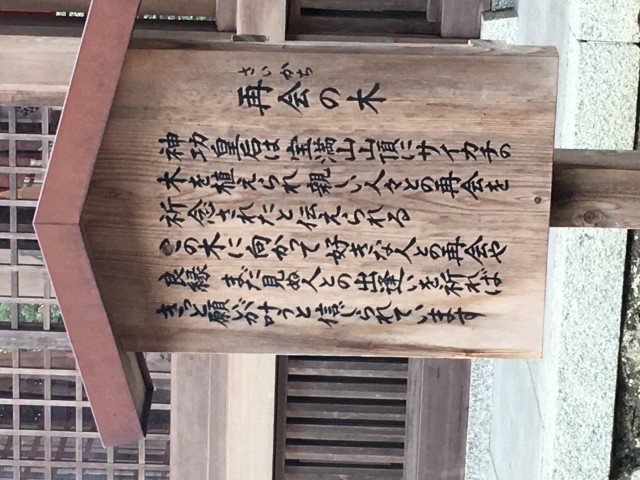 さいかち
再会の木
神功皇后は宝満山山頂にサイカチの
木を植えられ 親しい人々との再会を
祈念されたと伝えられる
この木に向かって 好きな人との再会や
良縁 まだ見ぬ人との出逢いを祈れば
きっと願いが叶うと信じられています